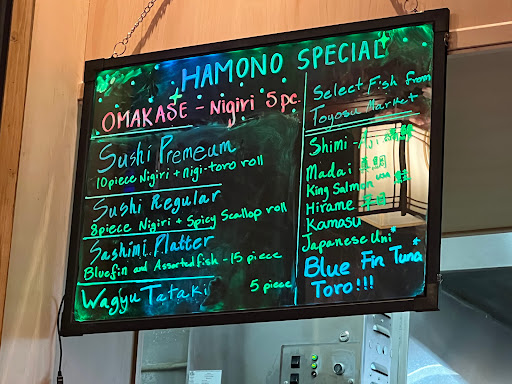 HAMONO SPECIAL
OMAKASE - Nigiri 5 pc.
Sushi Premeum
10 piece Nigiri + Nigi-toro roll
Sushi Regular
8 piece Nigiri + Spicy Scallop roll
Sashimi Platter
Bluefin and Assorted fish - 15 piece
Wagyu Tataki 5 piece
Select Fish from
Toyosu Market
Shimi - Aji
Madai 真鯛
King Salmon USA 鮭
Hirame 平目
Kamasu
Japanese Uni*
Blue Fin Tuna*
Toro!!!